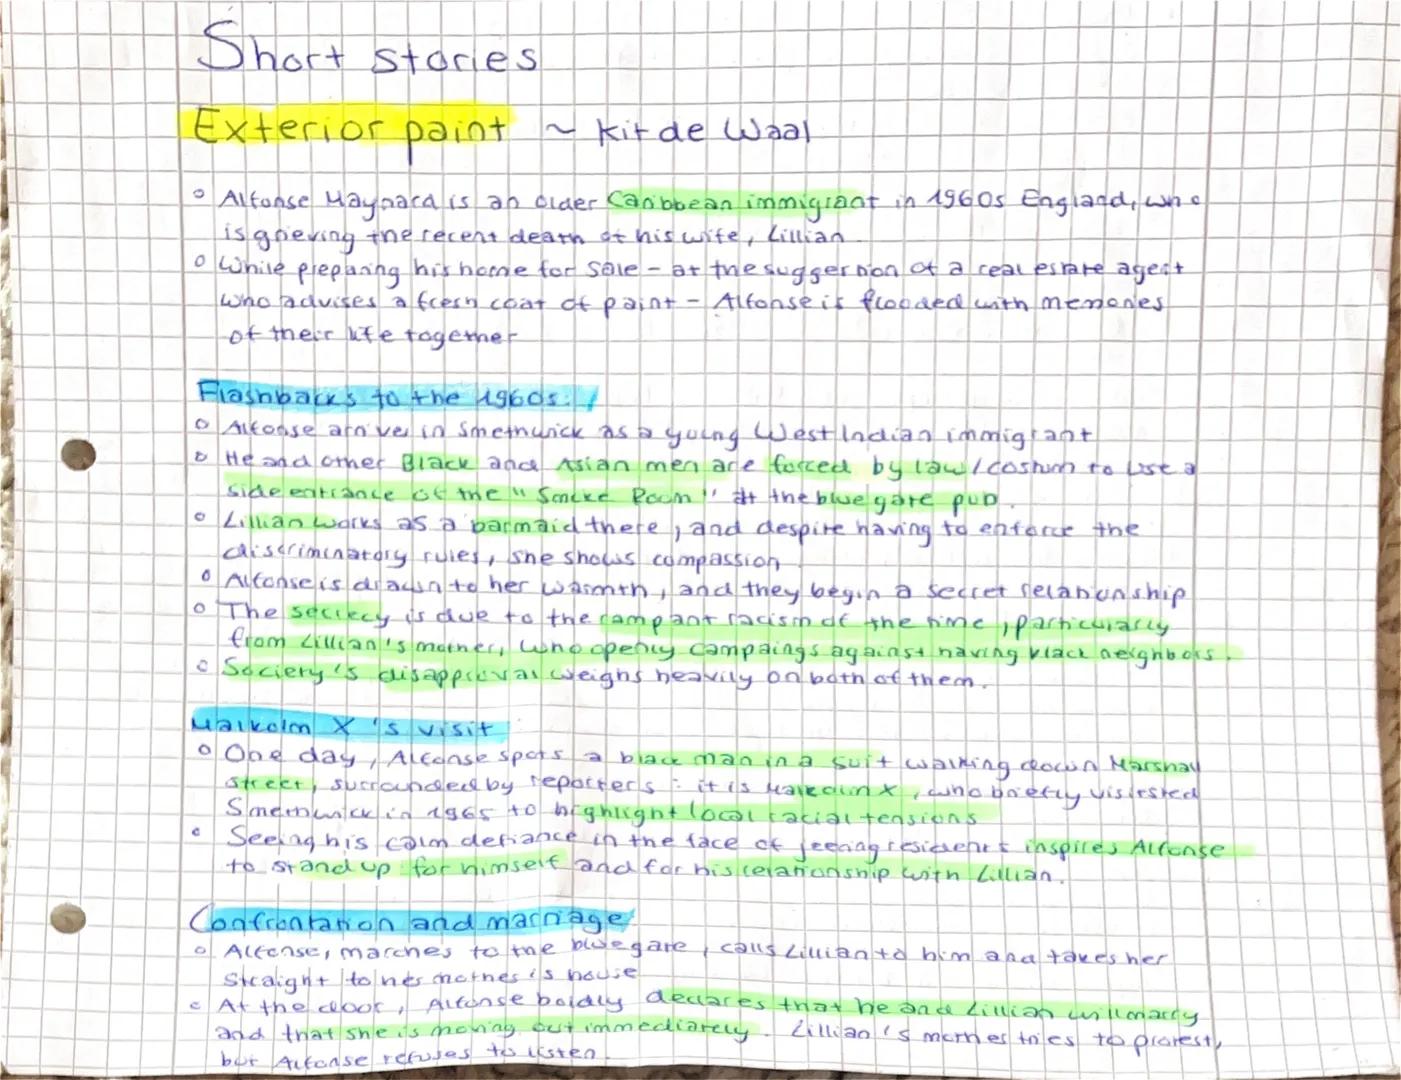 Short stories
Exterior paint ~ Kit de Waal
Alfonse Maynard is an older Caribbean immigrant in 1960s England, who
is grieving the recent death of his wife, Lillian.
While preparing his home for sale - at the suggestion of a real estate agent
who advises a fresh coat of paint - Alfonse is flooded with memories
of their life together
Flashbacks to the 1960s:
Alfonse arrives in Smethwick as a young West Indian immigrant
He and other Black and Asian men are forced by law/costum to use a
side entrance of the "Smoke Room" at the blue gate pub.
Lillian works as a barmaid there, and despite having to enforce the
discriminatory rules, she shows compassion
Alfonse is drawn to her warmth, and they begin a secret relationship
The secrecy is due to the rampant racism of the time, particularly
from Lillian's mother, who openly campaings against having black neighbors.
Society's disapproval weighs heavily on both of them.
Malkolm X 's visit
One day, Alfonse spots a black man in a suit walking down Marshall
street, surrounded by reporters: it is Malkolm X, who briefly visitsted
Smethwick in 1965 to highlight local racial tensions
Seeing his calm defiance in the face of jeering residents inspires Alfonse
to stand up for himself and for his relationship with Lillian.
Confrontation and marriage
Alfonse, marches to the blue gate, calls Lillian to him and takes her
straight to her mother's house
At the door, Alfonse boldly declares that he and Lillian will marry
and that she is moving out immediately. Lillian's mother tries to protest,
but Alfonse refuses to listen.